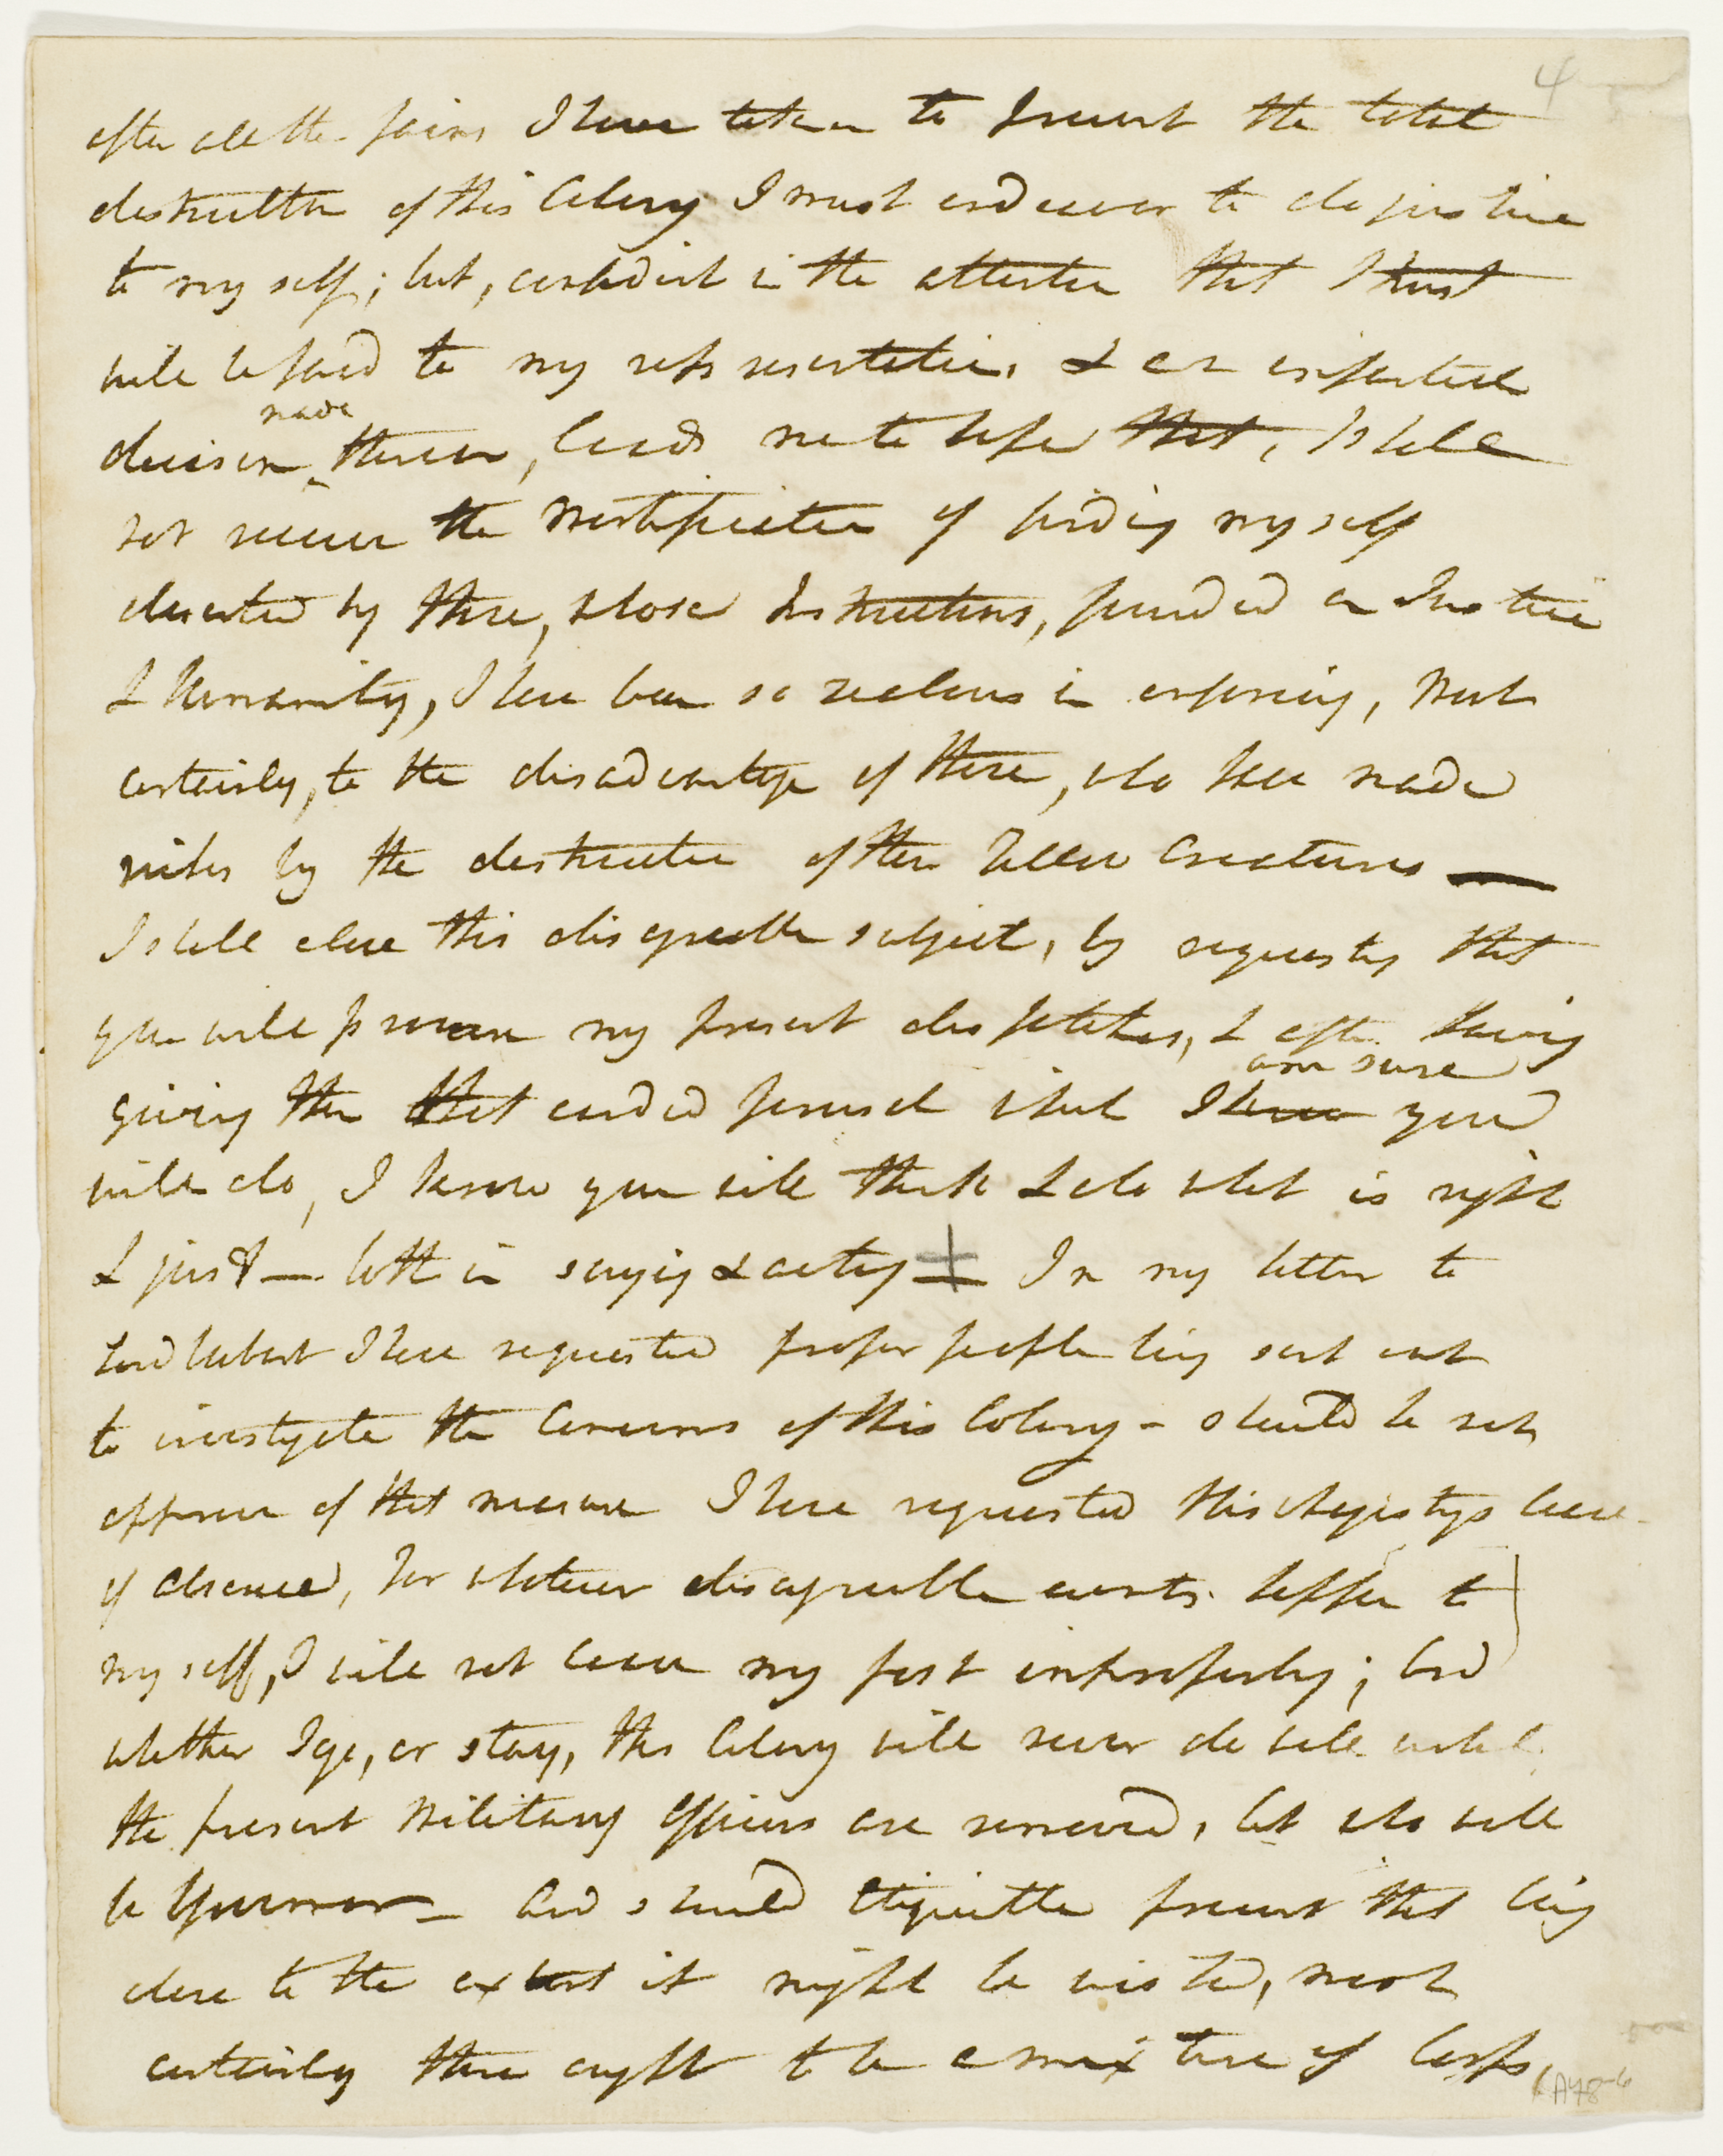 4
after all the pains I have taken to prevent the total
destruction of this Colony I must endeavor to do justice
to my self; but, confident in the attention that I trust
will be paid to my representation, & an impartial
made
decision thereon, leads me to hope that, I shall
not receive the Mortification of finding myself
deserted by those, whose Instructions, founded on Justice
& Humanity, I have been so zealous in enforcing, Most
certainly, to the disadvantage of those, who have made
riches by the destruction of their Fellow Creatures —
I shall close this disagreeable subject, by requesting that
you will procure my present dispatches, & after having
am sure
giving them that candid perusal which I know you
will do, I know you will think & do what is right
& just — both in saying & acting — In my letter to
Lord Hobart I have requested proper people being sent out
to investigate the Concerns of this Colony - should he not
approve of that measure I have requested His Majestys leave
of absence, for whatever disagreeable events happen to
my self, I will not leave my post improperly; And
whether I go, or stay, this Colony will never do well until
the present Military Officers are removed, let who will
be Governor — And should Etiquette prevent that being
done to the extent it might be wished, most
certainly there ought to be a mixture of Corps,
A78-6